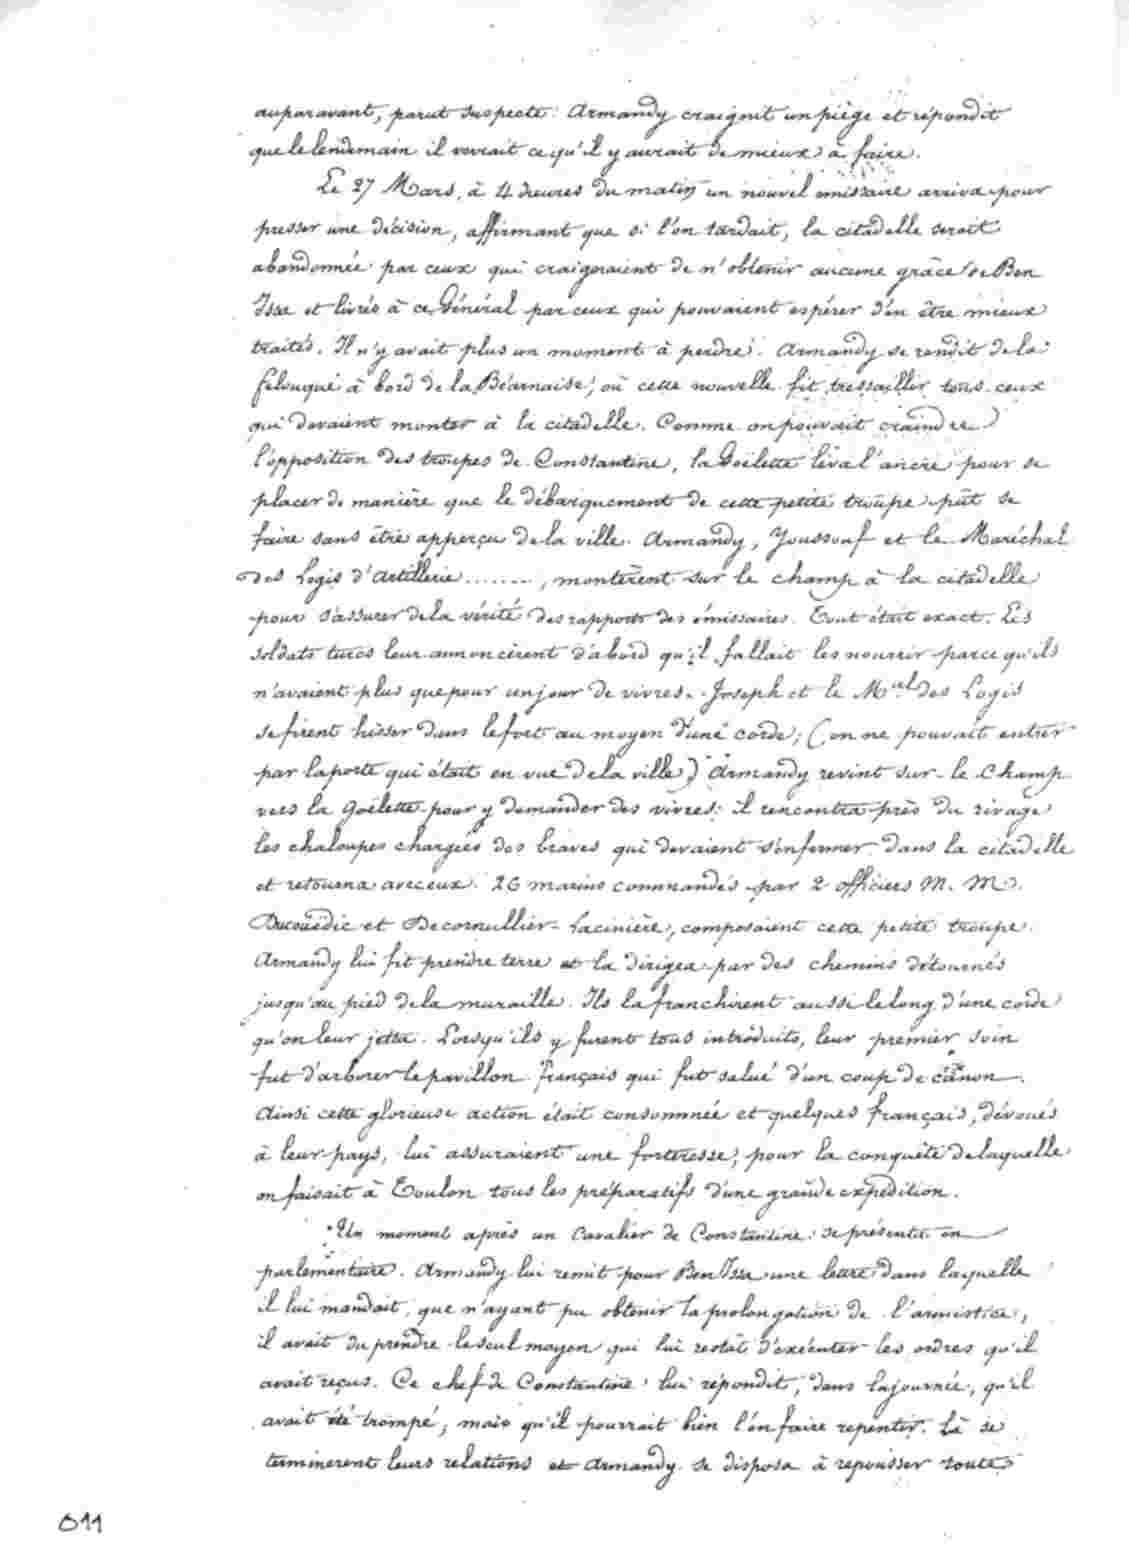 auparavant, parut suspecte. Armandy craignit un piège et répondit
que le lendemain il verrait ce qu'il y aurait de mieux à faire.
Le 27 Mars, à 4 heures du matin un nouvel émissaire arriva pour
presser une décision, affirmant que si l'on tardait, la citadelle serait
abandonnée par ceux qui craignaient de n'obtenir aucune grâce de Ben
Issa et livrés à ce Général par ceux qui pouvaient espérer d'en être mieux
traités. Il n'y avait plus un moment à perdre. Armandy se rendit de la
felouque à bord de la Béarnaise, où cette nouvelle fit tressaillir tous ceux
qui devaient monter à la citadelle. Comme on pouvait craindre
l'opposition des troupes de Constantine, la Goëlette leva l'ancre pour se
placer de manière que le débarquement de cette petite troupe pût se
faire sans être apperçu de la ville. Armandy, Youssouf et le Maréchal
des Logis d'Artillerie ......., montèrent sur le champ à la citadelle
pour s'assurer de la vérité des rapports des émissaires. Tout était exact. Les
soldats turcs leur annoncèrent d'abord qu'il fallait les nourrir parce qu'ils
n'avaient plus que pour un jour de vivres. Joseph et le M.al des Logis
se firent hisser dans le fort au moyen d'une corde; (on ne pouvait entrer
par la porte qui était en vue de la ville) Armandy revint sur-le Champ
vers la Goëlette pour y demander des vivres: il rencontra près du rivage
les chaloupes chargées des braves qui devaient s'enfermer dans la citadelle
et retourna avec eux. 26 marins commandés par 2 officiers M. M.
Ducouëdic et Decornullier-Lacinière, composaient cette petite troupe.
Armandy lui fit prendre terre et la dirigea par des chemins détournés
jusqu'au pied de la muraille. Ils la franchirent aussi le long d'une corde
qu'on leur jetta. Lorsqu'ils y furent tous introduits, leur premier soin
fut d'arborer le pavillon français qui fut salué d'un coup de canon.
Ainsi cette glorieuse action était consommée et quelques français, dévoués
à leur pays, lui assuraient une forteresse, pour la conquête de laquelle
on faisait à Toulon tous les préparatifs d'une grande expédition.
Un moment après un Cavalier de Constantine se présenta en
parlementaire. Armandy lui remit pour Ben Issa une lettre dans laquelle
il lui mandait, que n'ayant pu obtenir la prolongation de l'armistice,
il avait du prendre le seul moyen qui lui restât d'exécuter les ordres qu'il
avait reçus. Ce chef de Constantine lui répondit, dans la journée, qu'il
avait été trompé, mais qu'il pourrait bien l'en faire repentir. Là se
terminèrent leurs relations et Armandy se disposa à repousser toute
011